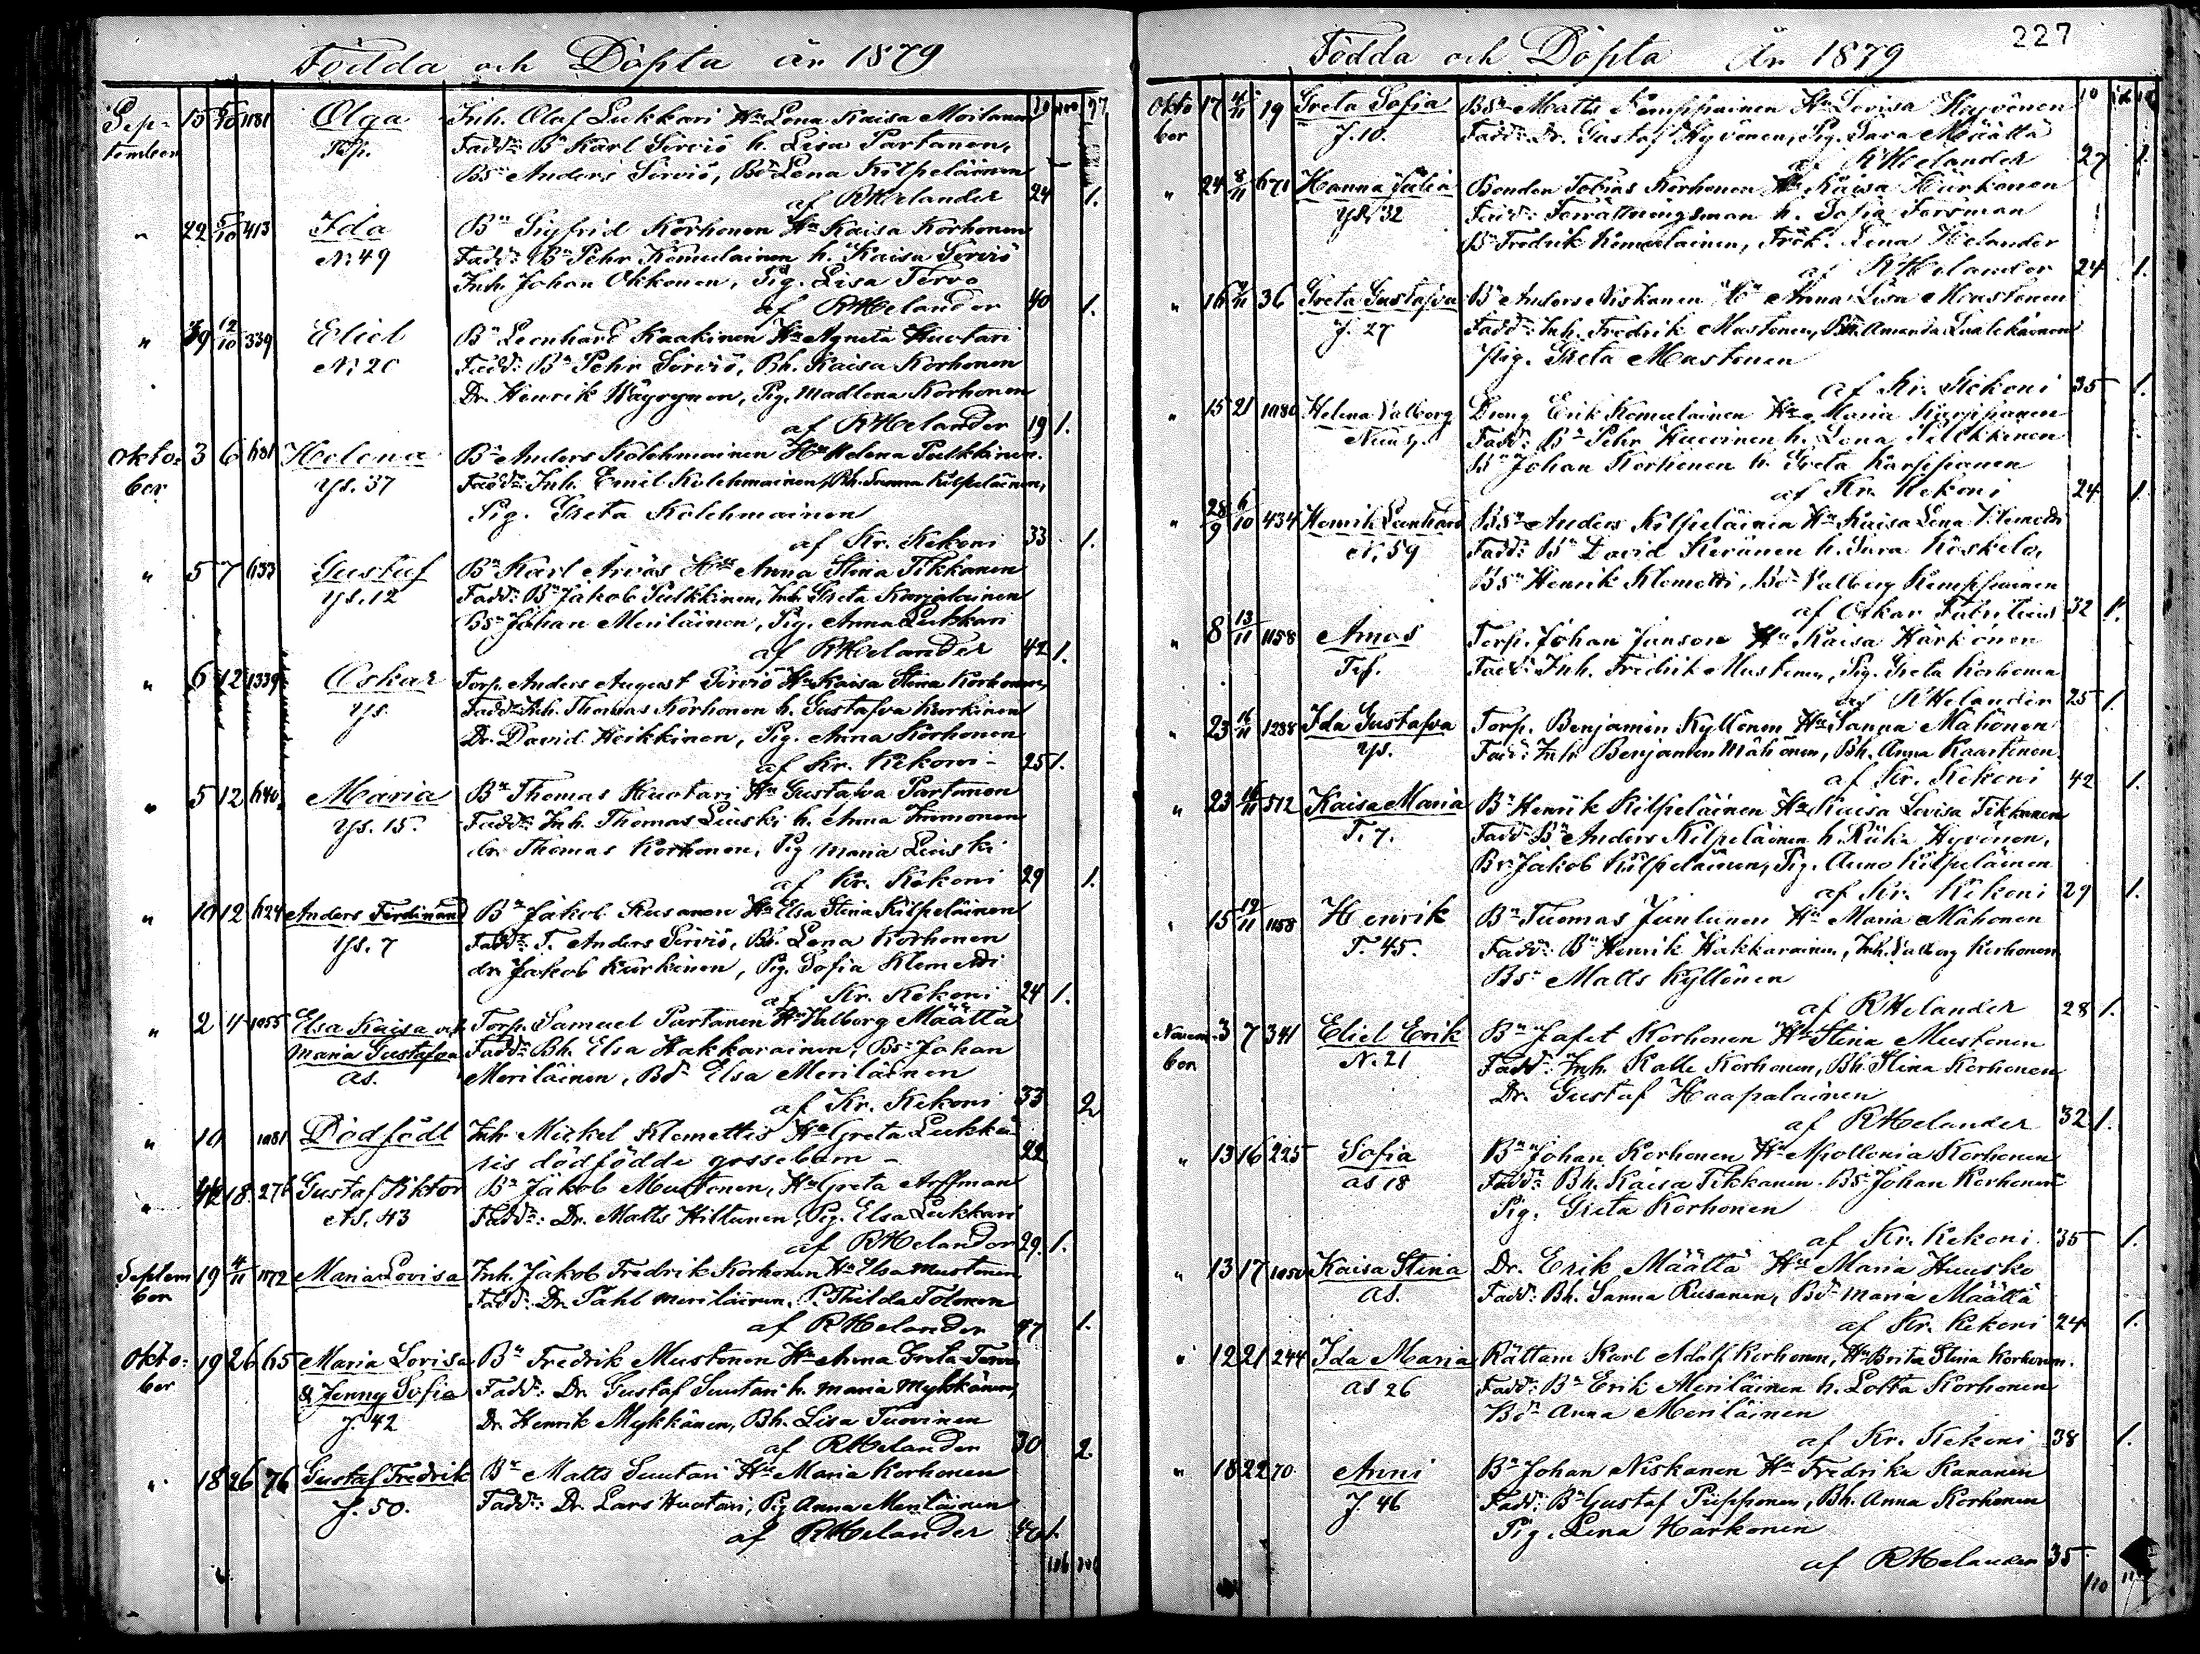 227
Födda och Döpta år 1879
Sep- 15 5/10 1181 Olga Inh. Olof Lukkari Hu Lena Kaisa Moilanen
tember Top. Fadd: Bn Karl Sirviö h. Lisa Partanen,
Bsn Anders Sirviö, Bd Lena Kilpeläinen
af RHelander 24 1.
" 22 5/10 413 Ida Bn Sigfrid Korhonen Hu Kaisa Korhonen
N. 49 Fadd: Bn Pehr Komulainen h. Kaisa Sirviö
Inh. Johan Okkonen, Pig. Lisa Tervo
af RHelander 40 1.
" 12/10 339 Eliel Bn Leonhard Kaakinen Hu Agneta Huotari
N. 20 Fadd: Bn Pehr Sirviö, Bh. Kaisa Korhonen
Dr. Henrik Väyrynen, Pig. Madlena Korhonen
af RHelander 19 1.
Okto- 3 6 Helena Bn Anders Kolehmainen Hu Helena Pulkkinen
ber Ys. 37 Fadd: Inh. Emil Kolehmainen, Bh. Sanna Kilpeläinen,
Pig. Greta Kolehmainen
af Kr. Kekoni 33 1.
" 5 7 Gustaf Bn Karl Arvas Hu Anna Stina Tikkanen
Ys. 12 Fadd: Bn Jakob Pulkkinen, Inh. Greta Karjalainen
Bsn Johan Meriläinen, Pig. Anna Lukkari
af RHelander 42 1.
" 6 12 1339 Oskar Torp. Anders August Sirviö Hu Kaisa Stina Korhonen,
Ys. Fadd: Inh. Thomas Korhonen h. Gustafva Kurkinen
Dr. David Heikkinen, Pig. Anna Korhonen
af Kr. Kekoni 25 1.
" 5 12 640 Maria Bn Thomas Huotari Hu Gustafva Partanen
Ys. 15. Fadd: Inh. Thomas Leinski h. Anna Immonen
dr. Thomas Korhonen, Pig Maria Leinski
af Kr. Kekoni 29 1.
" 10 12 624 Anders Ferdinand Bn Jakob Rusanen Hu Elsa Stina Kilpeläinen
Ys. 7 Fadd: T. Anders Sirviö, Bh. Lena Korhonen
dr. Jakob Kurkinen, Pig. Sofia Klemetti
af Kr. Kekoni 24 1.
" 2 4 1055 Elsa Kaisa och Torp. Samuel Partanen Hu Valborg Määttä
Maria Gustafva Fadd: Bh. Elsa Hakkarainen, Bsn Johan
As. Meriläinen, Bd Elsa Meriläinen
af Kr. Kekoni 33 2
" 10 1081 Dödfödt Inh. Mickel Klemettis Hu Greta Lukka-
ris dödfödde gossebarn - 22
" 12 18. 276 Gustaf Viktor Bn Jakob Mustonen, Hu Greta Hoffman
As. 43 Fadd: Dr. Matts Hiltunen, Pig. Elsa Lukkari
af RHelander 29. 1.
Septem 19 1172 Maria Lovisa Inh. Jakob Fredrik Korhonen Hu Elsa Mustonen
ber Fadd: Dr. Pahl Meriläinen, P. Thilda Tolonen
af RHelander 47 1.
Okto- 19 26 65 Maria Lovisa Bn Fredrik Mustonen Hu Anna Greta Tervo
ber & Jenny Sofia Fadd: Dr. Gustaf Suutari h. Maria Mykkänen,
J. 42 Dr. Henrik Mykkänen, Bh. Lisa Tuovinen
af RHelander 30 2.
" 18 26 76 Gustaf Fredrik Bn Matts Suutari Hu Maria Korhonen
J. 50. Fadd: Dr. Lars Huotari, Pig Anna Meriläinen
af RHelander
Födda och Döpta År 1879
Okto 17 19 Greta Sofia Bsn Matts Kemppainen Hu Lovisa Hyvönen
ber J. 10. Fadd: Dr. Gustaf Hyvönen, Pig. Sara Määttä
af RHelander 27 1.
" 24 8/11 671 Hanna Julia Bonden Tobias Korhonen Hu Kaisa Härkönen
Ys. 32 Fadd: Förrättningsman h. Sofia Forsman
Bn Fredrik Komulainen, Frök. Lena Helander
af RHelander 24 1.
" 16 36 Greta Gustafva Bn Anders Niskanen Hu Anna Lisa Mustonen
J. 27 Fadd: Inh. Fredrik Mustonen, Bh. Amanda
Pig. Greta Mustonen
af Kr. Kekoni 35 1.
" 15 21 1080 Helena Valborg Dreng Erik Komulainen Hu Maria Karppanen
Fadd: Bn Pehr Huovinen h. Lena Pulkkinen
Bn Johan Korhonen h. Greta Karppanen
af Kr. Kekoni 24 1.
" 28/9 6/10 434 Henrik Leonhard Bsn Anders Kilpeläinen Hu Kaisa Lena Klemetti
N. 59 Fadd: Bn David Keränen h. Sara Koskelo,
Bsn Henrik Klemetti, Bd Valborg Kemppainen
af Oskar Fabritius 32 1.
" 8 13/11 1158 Amos Torp. Johan Janson Hu Kaisa Härkönen
Fadd: Inh. Fredrik Mustonen, Pig. Greta Korhonen
af RHelander 25 1.
" 23 16/11 1288 Ida Gustafva Torp. Benjamin Kyllönen Hu Sanna Mähönen
Ys. Fadd: Inh. Benjamin Mähönen, Bh. Anna Kaartinen
af Kr. Kekoni 42 1.
" 23 16/11 512 Kaisa Maria Bn Henrik Kilpeläinen Hu Kaisa Lovisa Tikkanen
T. 7. Fadd: Bn Anders Kilpeläinen h. Hyvönen,
Br. Jakob Kilpeläinen, Pig. Anna Kilpeläinen
af Kr. Kekoni 29 1.
15 1158 Henrik Bn Tuomas Juntunen Hu Maria Mähonen
T. 45. Fadd: Bn Henrik Hakkarainen, Inh. Valborg Korhonen
Bsn Matts Kyllönen
af RHelander 28 1.
Novem- 3 7 341 Eliel Erik Bn Jafet Korhonen Hu Stina Mustonen
ber N. 21 Fadd: Inh. Kalle Korhonen, Bh. Stina Korhonen
Dr. Gustaf Haapalainen
af RHelander 32 1.
" 13 16 225 Sofia Bn Johan Korhonen Hu Apollonia Korhonen
As 18 Fadd: Bh. Kaisa Tikkanen. Bsn Johan Korhonen
Pig. Greta Korhonen
af Kr. Kekoni 35 1.
" 13 17 1050 Kaisa Stina Dr. Erik Määttä Hu Maria Huusko
As. Fadd: Bh. Sanna Rusanen, Bd Maria Määttä
af Kr. Kekoni 24 1.
" 12 21 244 Ida Maria Rättam Karl Adolf Korhonen, Hu Brita Stina Korhonen.
As 26 Fadd: Bn Erik Meriläinen h. Lotta Korhonen
Bd Anna Meriläinen
af Kr. Kekoni 38 1.
" 18 22 70 Anni Bn Johan Niskanen Hu Fredrika Kananen
J. 46 Fadd: Bn Gustaf Piipponen, Bh. Anna Korhonen
Pig. Lena Härkönen
af RHelander 35
110